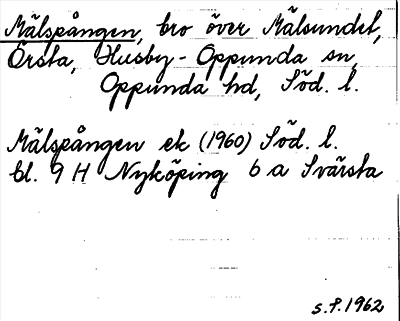 Mälspången, bro över Mälsundet,
Örsta, Husby-Oppunda sn,
Oppunda hd, Söd. l.
Mälspången ek (1960) Söd. l.
bl. 9 H Nyköping 6 a Svärsta
S.P. 1962